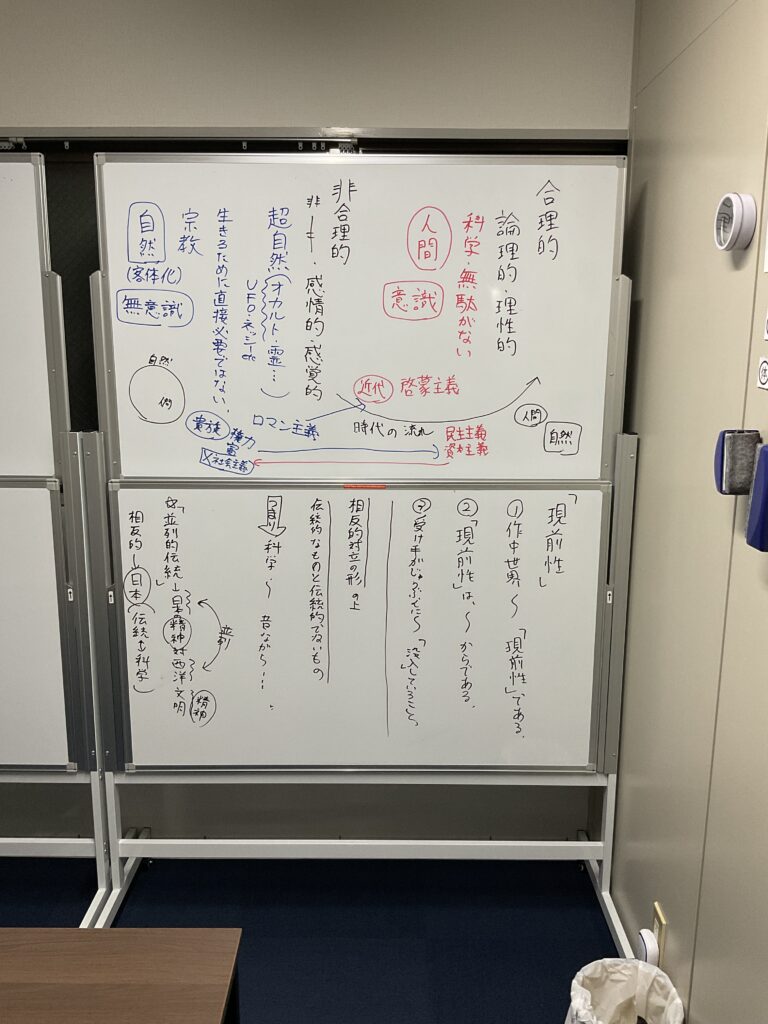 合理的
論理的・理性的
科学・無駄がない
人間
意識
非合理的
非 〃 ・感情的・感覚的
超自然(オカルト・霊…)
UFO・ネッシーetc
生きるために直接必要ではない.
宗教
自然
(客体化)
無意識
自然
人間
近代 啓蒙主義
ロマン主義
時代の流れ
人間
自然
貴族
権力
富
社会主義
民主主義
資本主義
「現前性」
①作中世界〜「現前性」である.
②「現前性」は、〜からである.
受け手がじゅうぶんに〜「没入していること」
相反的対立の形の上
伝統的なものと伝統的でないもの
つまり 科学〜昔ながら….
「並列的伝統」
日本精神対西洋文明
精神
並列
相反的→日本(伝統↔科学)